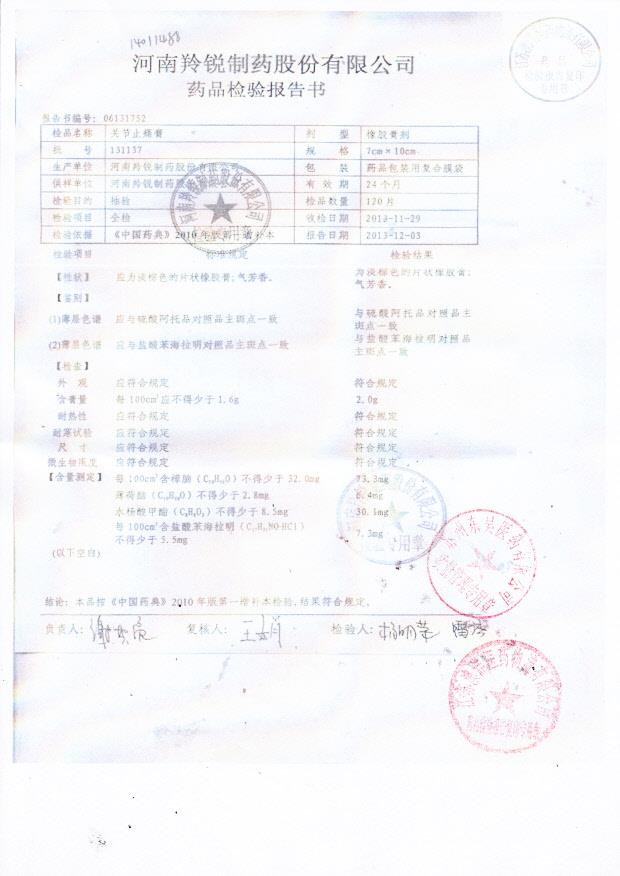 14011488
河南羚锐制药股份有限公司
药品检验报告书
药品
检验报告复印
专用章
报告书编号: 06131752
检品名称 关节止痛膏 剂 型 橡胶膏剂
批 号 131137 规 格 7cm×10cm
生产单位 河南羚锐制药股份有限公司 包 装 药品包装用复合膜袋
供样单位 河南羚锐制药股 有 效 期 24个月
检验目的 抽检 检品数量 120片
检验项目 全检 收检日期 2013-11-29
检验依据 《中国药典》2010年版第一增补本 报告日期 2013-12-03
检验项目 标准规定 检验结果
【性状】 应为淡棕色的片状橡胶膏;气芳香。 为淡棕色的片状橡胶膏;
气芳香。
【鉴别】
(1)薄层色谱 应与硫酸阿托品对照品主斑点一致 与硫酸阿托品对照品主
斑点一致
(2)薄层色谱 应与盐酸苯海拉明对照品主斑点一致 与盐酸苯海拉明对照品
主斑点一致
【检查】
外 观 应符合规定 符合规定
含膏量 每100cm²应不得少于1.6g 2.0g
耐热性 应符合规定 符合规定
耐寒试验 应符合规定 符合规定
尺 寸 应符合规定 符合规定
微生物限度 应符合规定 符合规定
【含量测定】 每100cm²含樟脑(C₁₀H₁₆O)不得少于32.0mg 73.3mg
薄荷脑(C₁₀H₂₀O)不得少于2.8mg 6.4mg
水杨酸甲酯(C₈H₈O₃)不得少于8.5mg 30.1mg
每100cm²含盐酸苯海拉明(C₁₇H₂₁NO·HCl)
不得少于5.5mg 7.3mg
(以下空白)
结论: 本品按《中国药典》2010年版第一增补本检验,结果符合规定。
负责人: 复核人: 检验人: 杨明荣